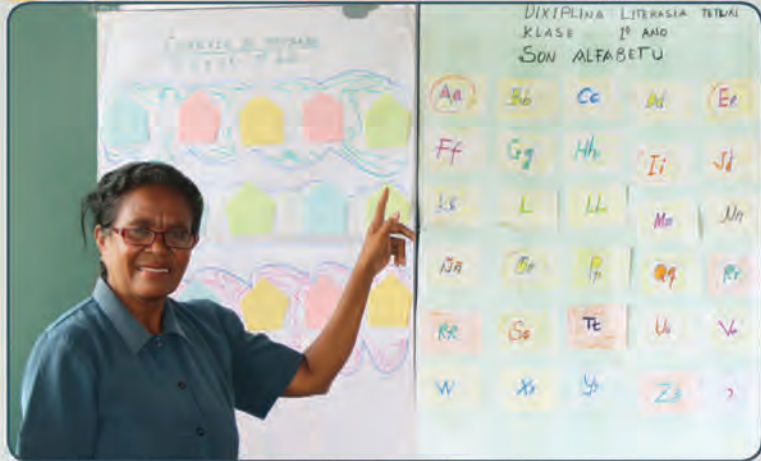 DIXIPLINA LITERASIA TETUM
KLASE 1º ANO
SON ALFABETU
Aa Bb Cc Dd Ee
Ff Gg Hh Ii Jj
L LL Mm Nn
Pp Qq Rr
RR Ss Tt Uu Vv
W Xx Yy Zz